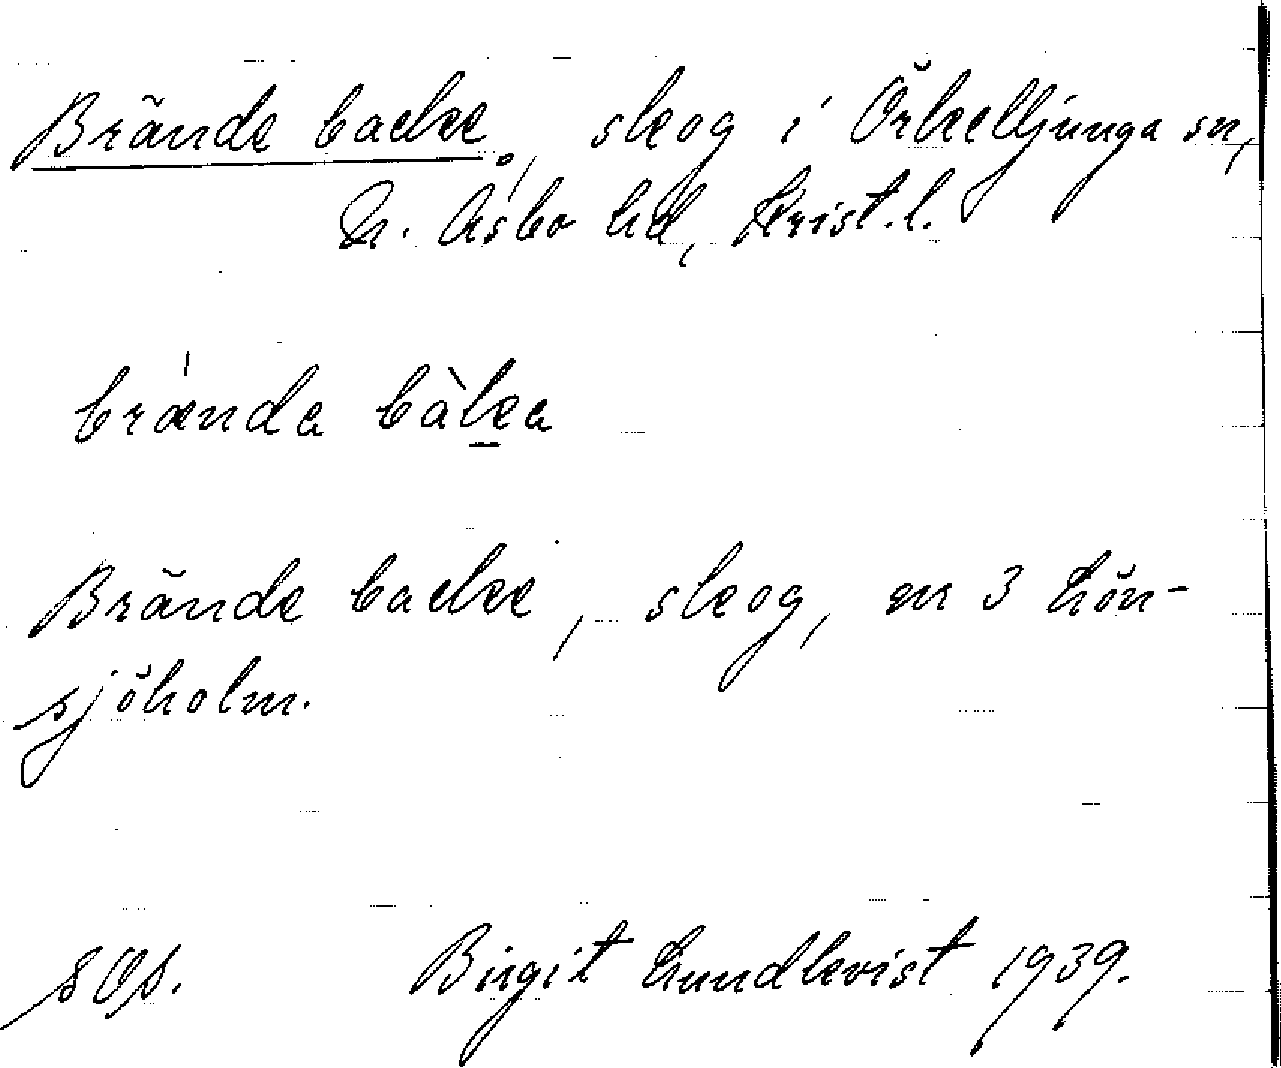 Brände backe, skog i Örkelljunga sn,
N. Åsbo hd, Krist. l.
brända bàka
Brände backe, skog, nr 3 Lön-
sjöholm.
Birgit Lundkvist 1939.